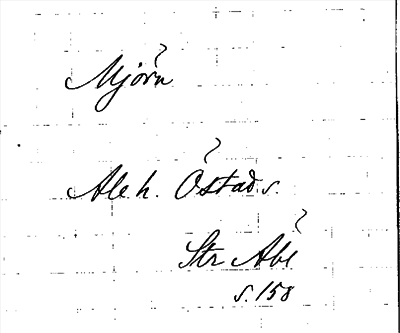 Mjörn
Ale h. Östad s.
Str Äbl
s. 158